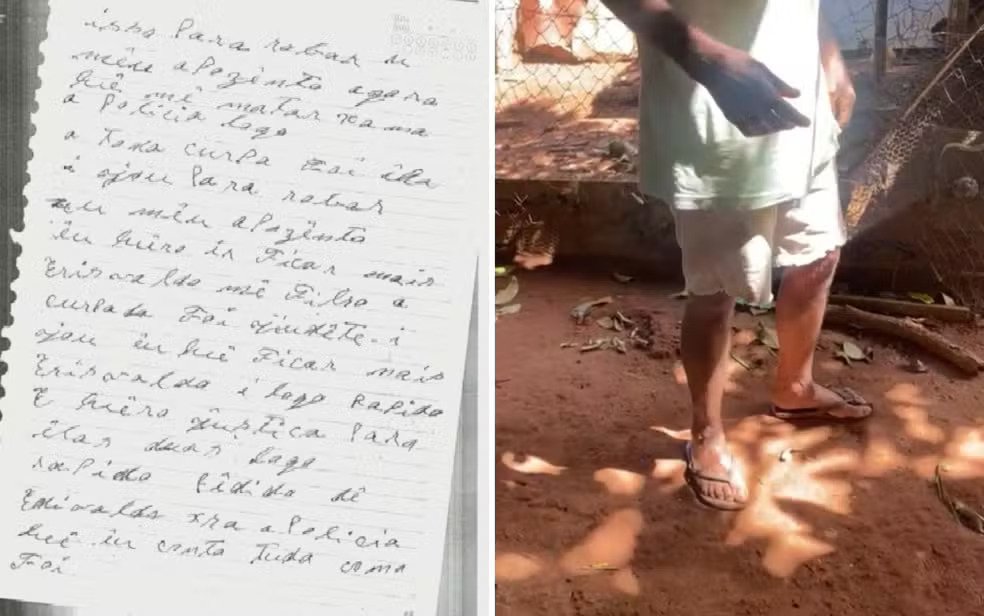 isso Para robar u
mêu apozênto agora
hê mê matar xama
a Policia logo
a Toda curpa Foi êla
i ojou Para robar
u mêu apozênto
êu huêro ir Ficar mais
Erisvaldo mê Filho a
curpada Foi i
ojou êu huê Ficar mais
Erisvaldo i logo Rapido
E huêro justica Para
êlas duas logo
rapido Pêdido dê
Erisvaldo xra a Policia
huê êu conto tudo como
Foi